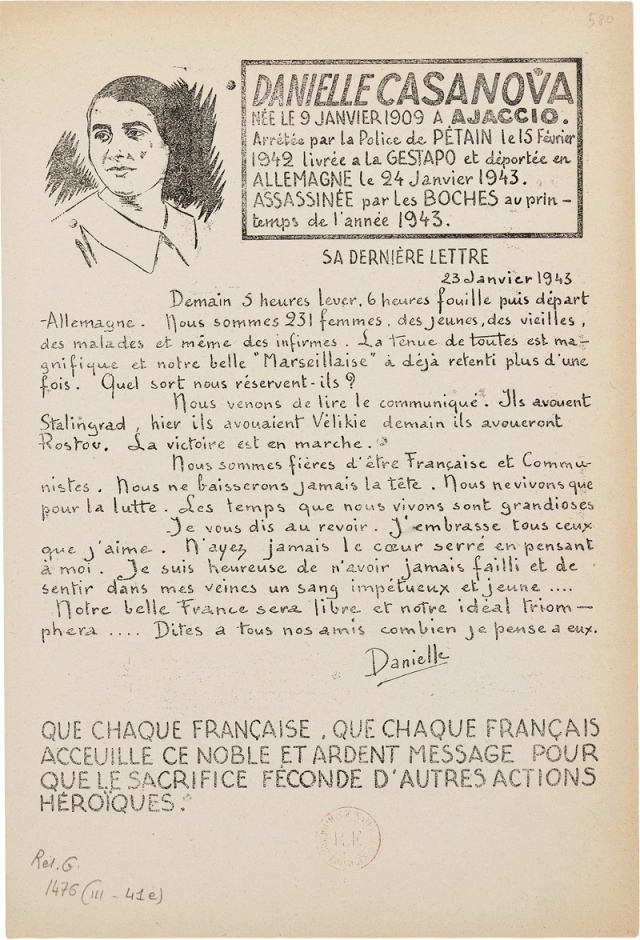 580
DANIELLE CASANOVA
NÉE LE 9 JANVIER 1909 A AJACCIO.
Arrêtée par la Police de PÉTAIN le 15 Février
1942 livrée a la GESTAPO et déportée en
ALLEMAGNE le 24 Janvier 1943.
ASSASSINÉE par les BOCHES au prin-
temps de l'année 1943.
SA DERNIÈRE LETTRE
23 Janvier 1943
Demain 5 heures lever, 6 heures fouille puis départ
-Allemagne. Nous sommes 231 femmes, des jeunes, des vieilles,
des malades et même des infirmes. La tenue de toutes est ma-
gnifique et notre belle "Marseillaise" à déjà retenti plus d'une
fois. Quel sort nous réservent-ils ?
Nous venons de lire le communiqué. Ils avouent
Stalingrad, hier ils avouaient Vélikie demain ils avoueront
Rostov. La victoire est en marche.
Nous sommes fières d'être Française et Commu-
nistes. Nous ne baisserons jamais la tête. Nous ne vivons que
pour la lutte. Les temps que nous vivons sont grandioses
Je vous dis au revoir. J'embrasse tous ceux
que j'aime. N'ayez jamais le cœur serré en pensant
à moi. Je suis heureuse de n'avoir jamais failli et de
sentir dans mes veines un sang impétueux et jeune ....
Notre belle France sera libre et notre idéal triom-
phera .... Dites a tous nos amis combien je pense a eux.
Danielle
QUE CHAQUE FRANÇAISE, QUE CHAQUE FRANÇAIS
ACCEUILLE CE NOBLE ET ARDENT MESSAGE POUR
QUE LE SACRIFICE FÉCONDE D'AUTRES ACTIONS
HÉROÏQUES.
Rés. G.
1476 (III - 41e)